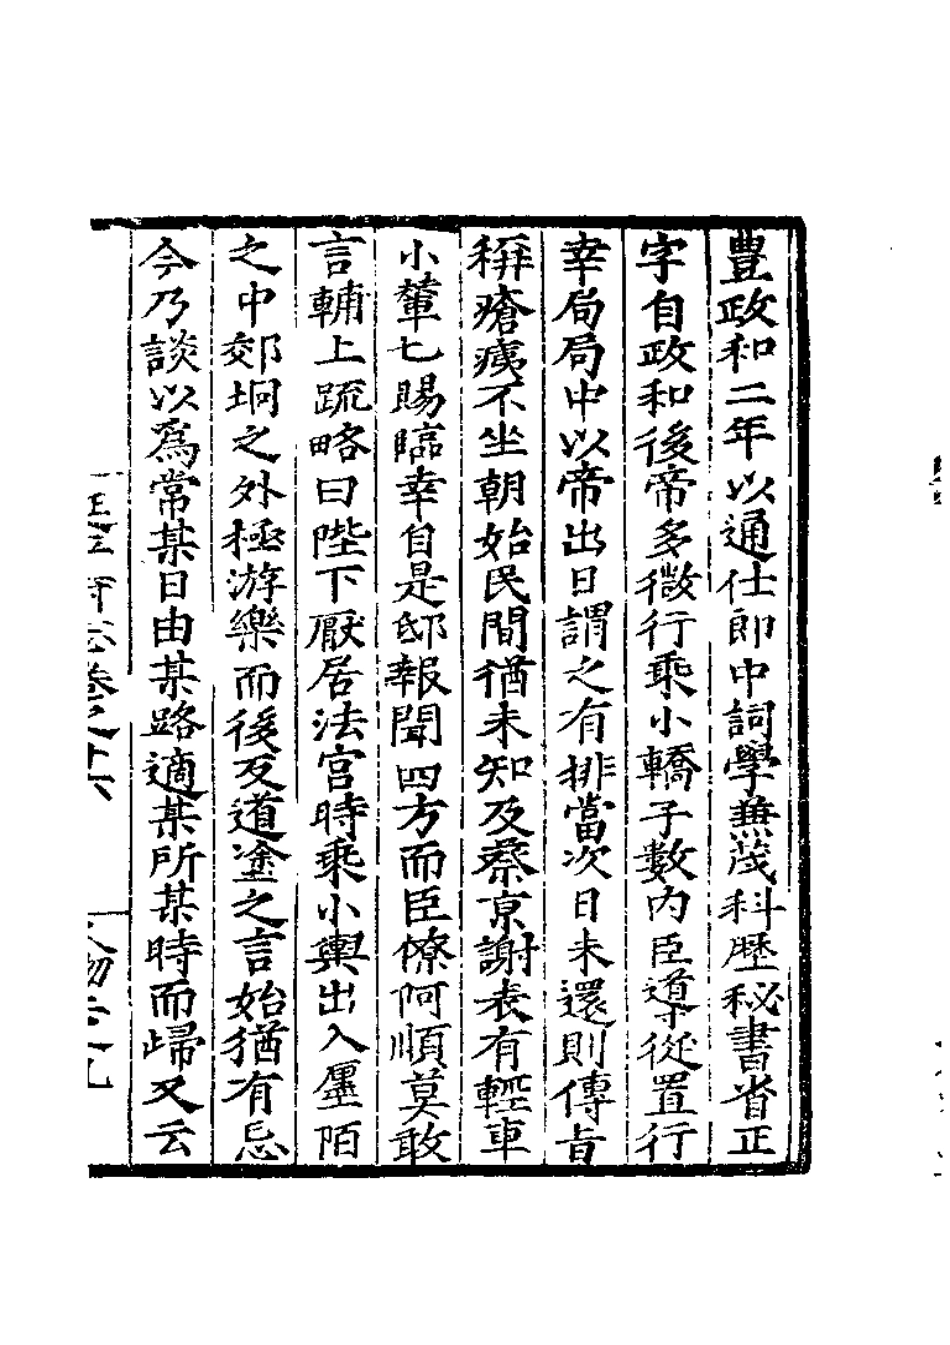 豊政和二年以通仕郎中詞學兼茂科歷秘書省正
字自政和後帝多微行乘小轎子數內臣導從置行
幸局局中以帝出日謂之有排當次日未還則傳旨
稱瘡痍不坐朝始民間猶未知及蔡京謝表有輕車
小輦七賜臨幸自是邸報聞四方而臣僚阿順莫敢
言輔上疏略曰陛下厭居法宫時乘小輿出入廛陌
之中郊坰之外極游樂而後反道塗之言始猶有忌
今乃談以爲常某日由某路適某所某時而歸又云
卷之十六